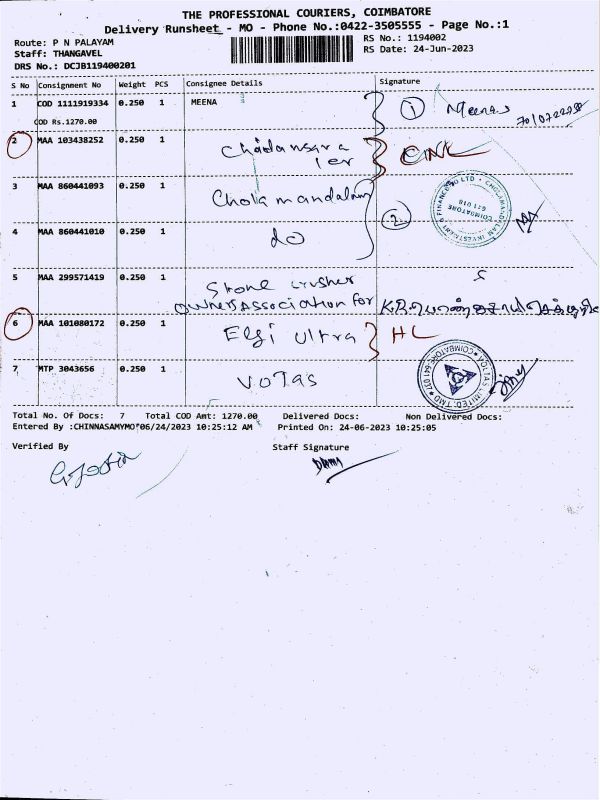 THE PROFESSIONAL COURIERS, COIMBATORE
Delivery Runsheet - MO - Phone No.:0422-3505555 - Page No.:1
Route: P N PALAYAM
RS No.: 1194002
Staff: THANGAVEL
RS Date: 24-Jun-2023
DRS No.: DCJB119400201
S No Consignment No Weight PCS Consignee Details Signature
1 COD 1111919334 0.250 1 MEENA 1 Meena
COD Rs.1270.00
2 MAA 103438252 0.250 1
3 MAA 860441093 0.250 1 Cholamandalam
2
4 MAA 860441010 0.250 1 do
5 MAA 299571419 0.250 1 Stone crusher
owners Association for
6 MAA 101080172 0.250 1 Elgi Ultra HL
7 MTP 3043656 0.250 1 VOTAS
Total No. Of Docs: 7 Total COD Amt: 1270.00 Delivered Docs: Non Delivered Docs:
Entered By :CHINNASAMYMO*06/24/2023 10:25:12 AM Printed On: 24-06-2023 10:25:05
Verified By Staff Signature